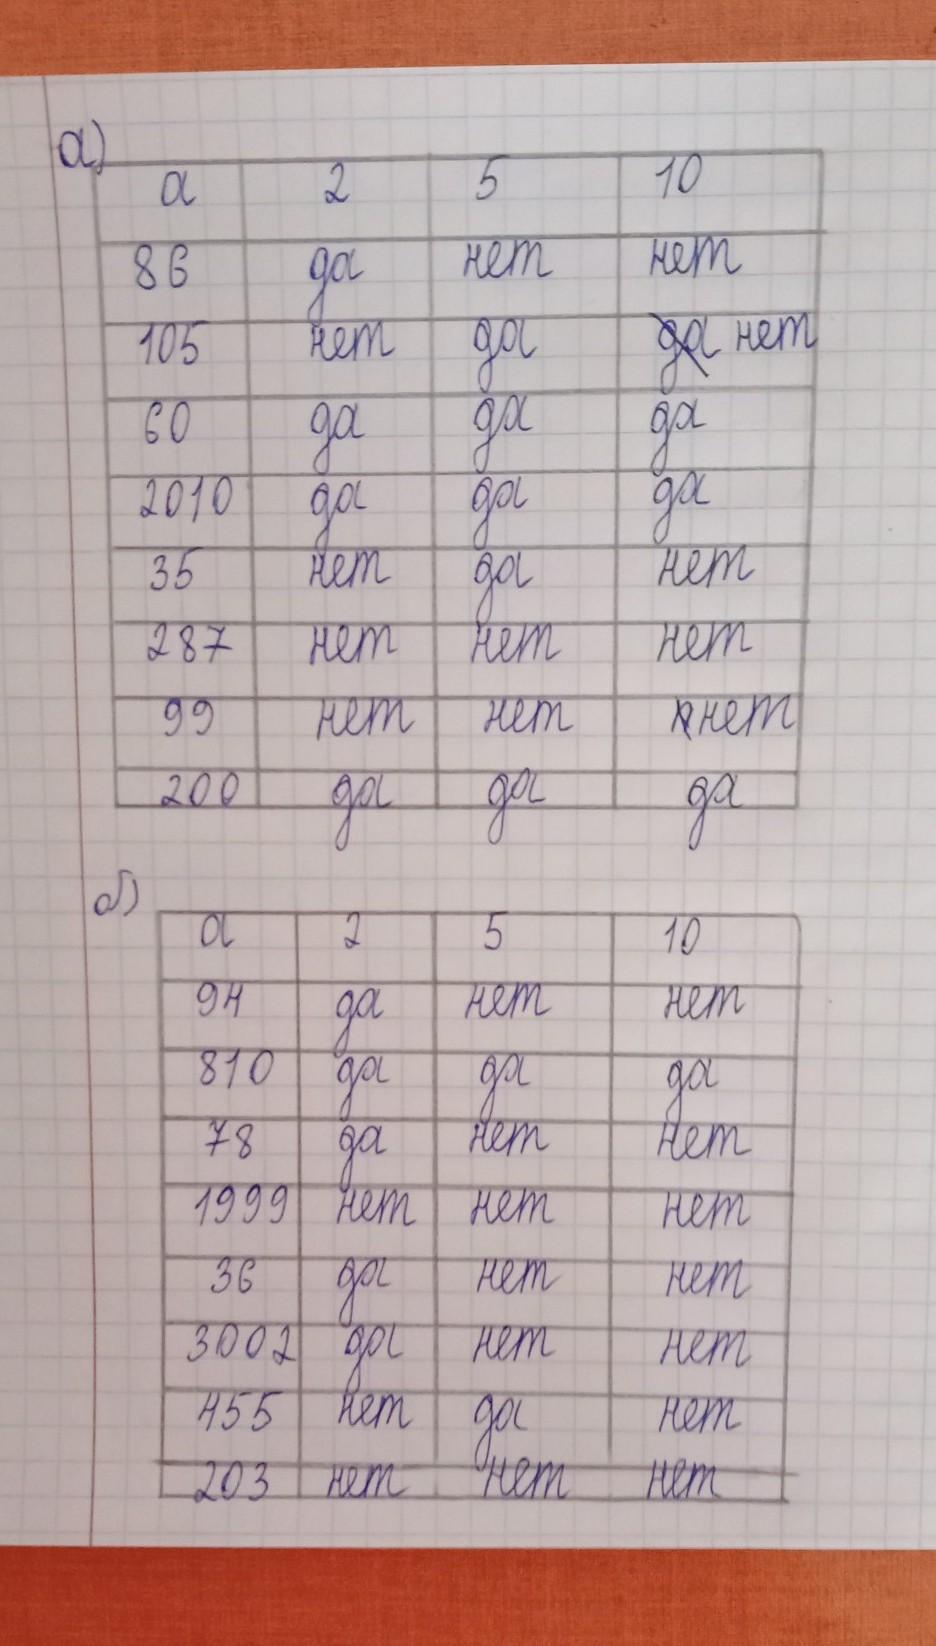 а)
а 2 5 10
86 да нет нет
105 нет да да нет
60 да да да
2010 да да да
35 нет да нет
287 нет нет нет
99 нет нет нет
200 да да да
б)
а 2 5 10
94 да нет нет
810 да да да
78 да нет нет
1999 нет нет нет
36 да нет нет
3002 да нет нет
455 нет да нет
203 нет нет нет